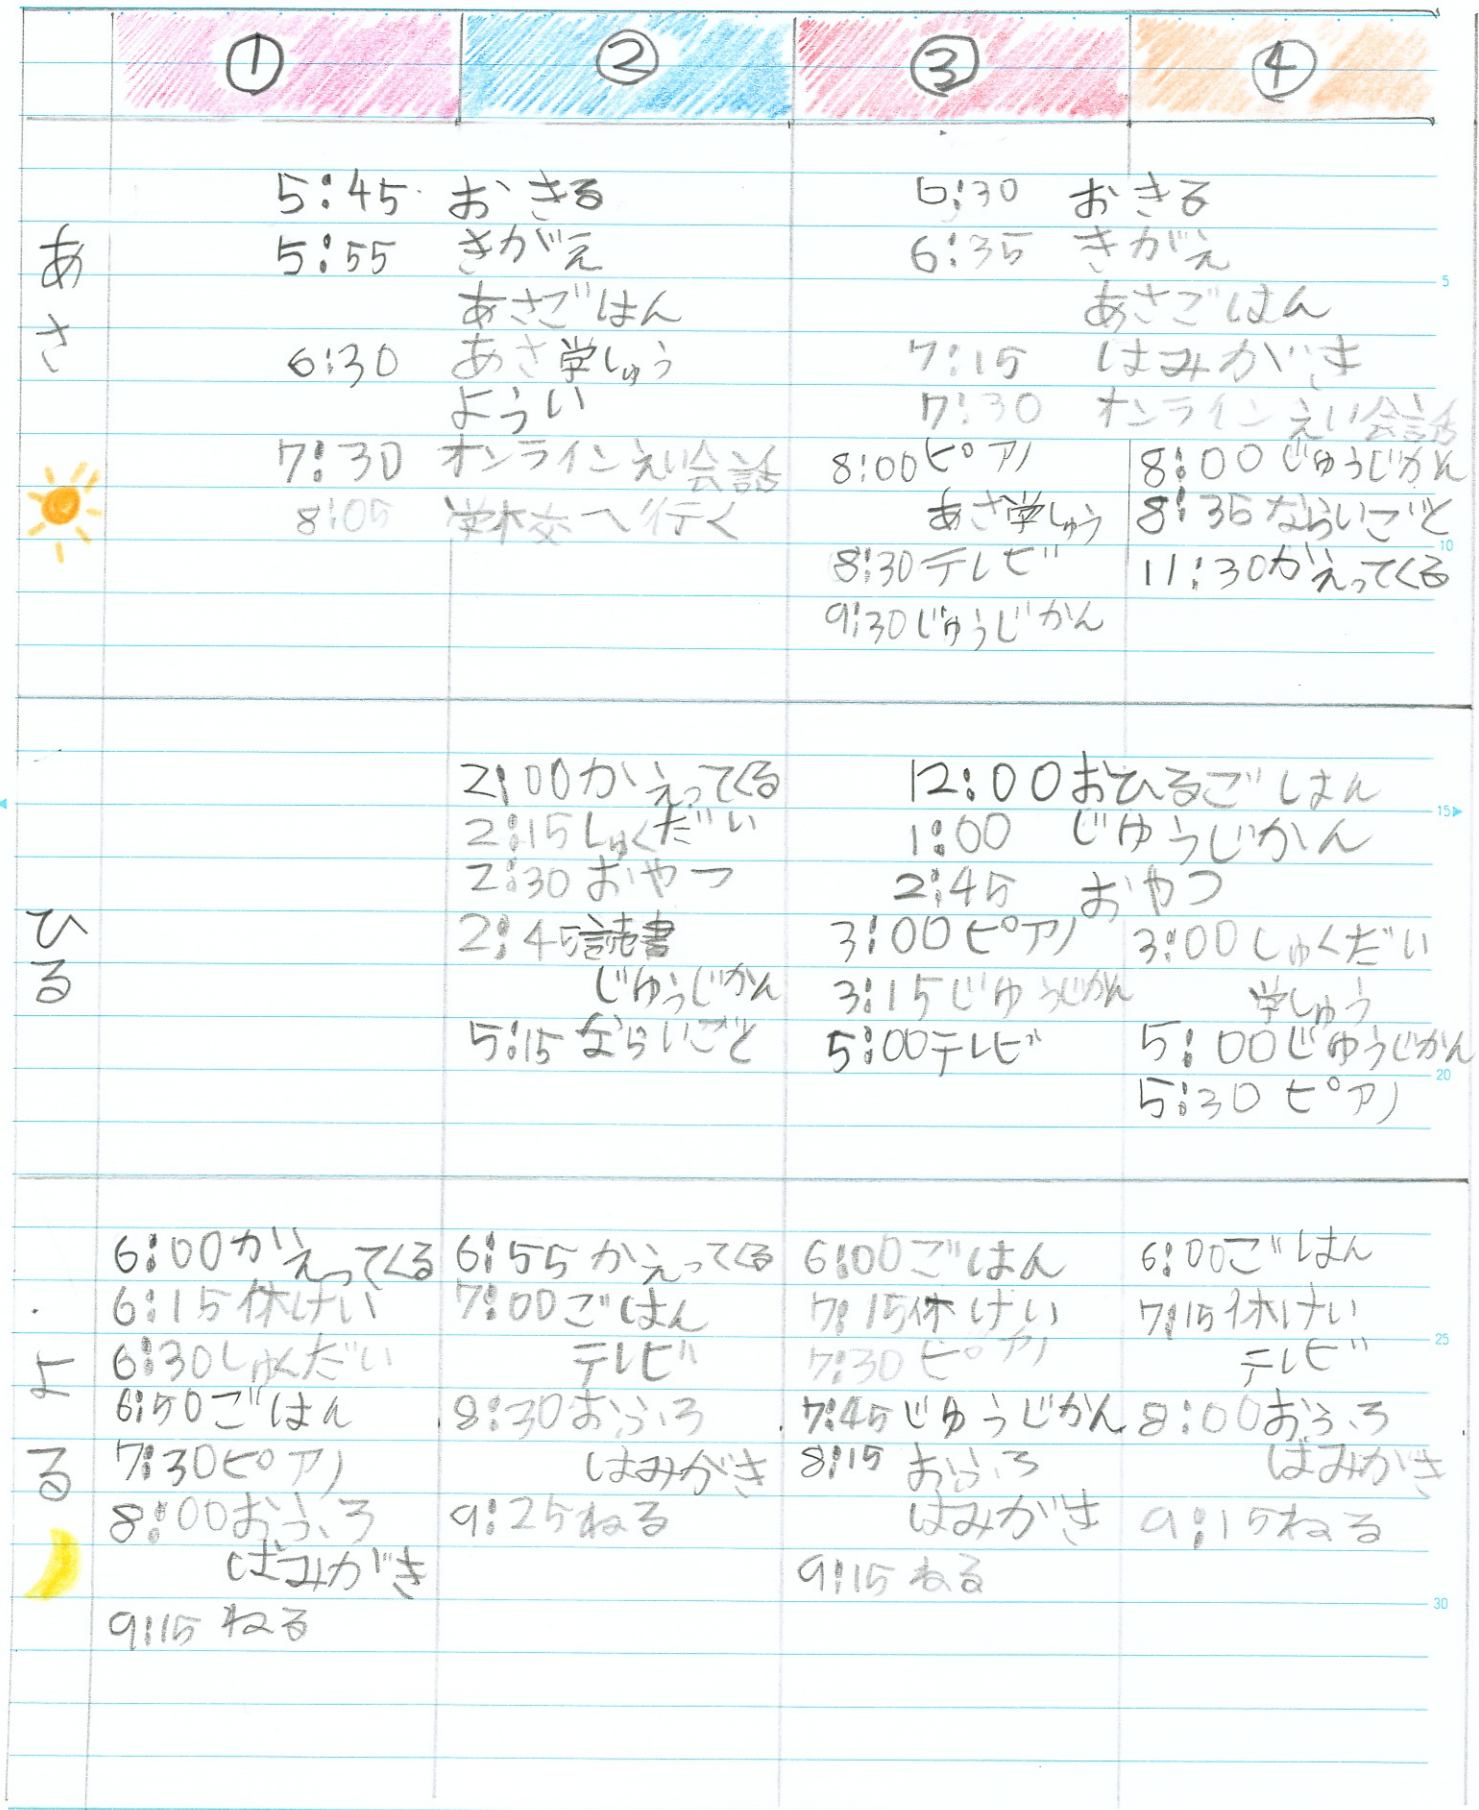 ① ② ③ ④
あさ
5:45 おきる
5:55 きがえ
あさごはん
6:30 あさ学しゅう
ようい
7:30 オンラインえい会話
8:05 学校へ行く
6:30 おきる
6:35 きがえ
あさごはん
7:15 はみがき
7:30 オンラインえい会話
8:00 ピアノ
あさ学しゅう
8:30 テレビ
9:30 じゅうじかん
8:00 じゅうじかん
8:35 ならいごと
11:30 かえってくる
ひる
2:00 かえってくる
2:15 しゅくだい
2:30 おやつ
2:45 読書
じゆうじかん
5:15 ならいごと
12:00 おひるごはん
1:00 じゆうじかん
2:45 おやつ
3:00 ピアノ
3:15 じゆうじかん
5:00 テレビ
3:00 しゅくだい
学しゅう
5:00 じゆうじかん
5:30 ピアノ
よる
6:00 かえってくる
6:15 休けい
6:30 しゅくだい
6:50 ごはん
7:30 ピアノ
8:00 おふろ
はみがき
9:15 ねる
6:55 かえってくる
7:00 ごはん
テレビ
8:30 おふろ
はみがき
9:25 ねる
6:00 ごはん
7:15 休けい
7:30 ピアノ
7:45 じゆうじかん
8:15 おふろ
はみがき
9:15 ねる
6:00 ごはん
7:15 休けい
テレビ
8:00 おふろ
はみがき
9:15 ねる
5
10
15
20
25
30